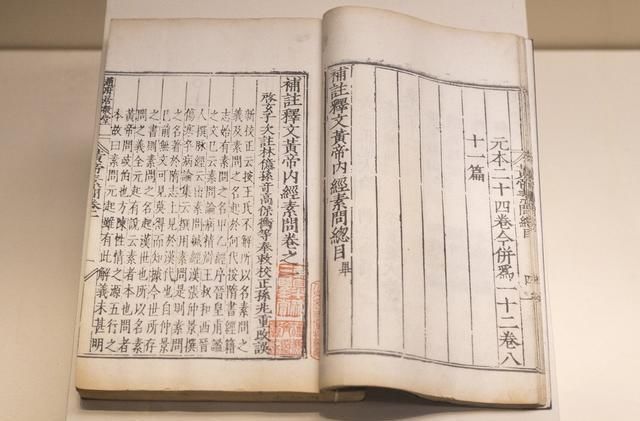 元本二十四卷今併爲一十二卷八
十一篇
補註釋文黃帝內經素問總目 畢
補註釋文黃帝內經素問卷之一
啓玄子次註林億孫奇高保衡等奉敕校正孫兆重改誤
新校正云按王氏不解所以名素問之
義及素問之名起於何代按隋書經籍
志始有素問之名甲乙經序晉皇甫謐
之文已云素問論病精辨王叔和西晉
人撰脉經云出素問鍼經漢張仲景撰
傷寒卒病論集云撰用素問是則素問
之名著於隋志上見於漢代也自仲景
已前無文可見莫得而知據今世所存
之書則素問之名起漢世也所以名素
問之義全元起有說云素者本也問者
黃帝問岐伯也方陳性情之源五行之
本故曰素問元起雖有此解義未甚明